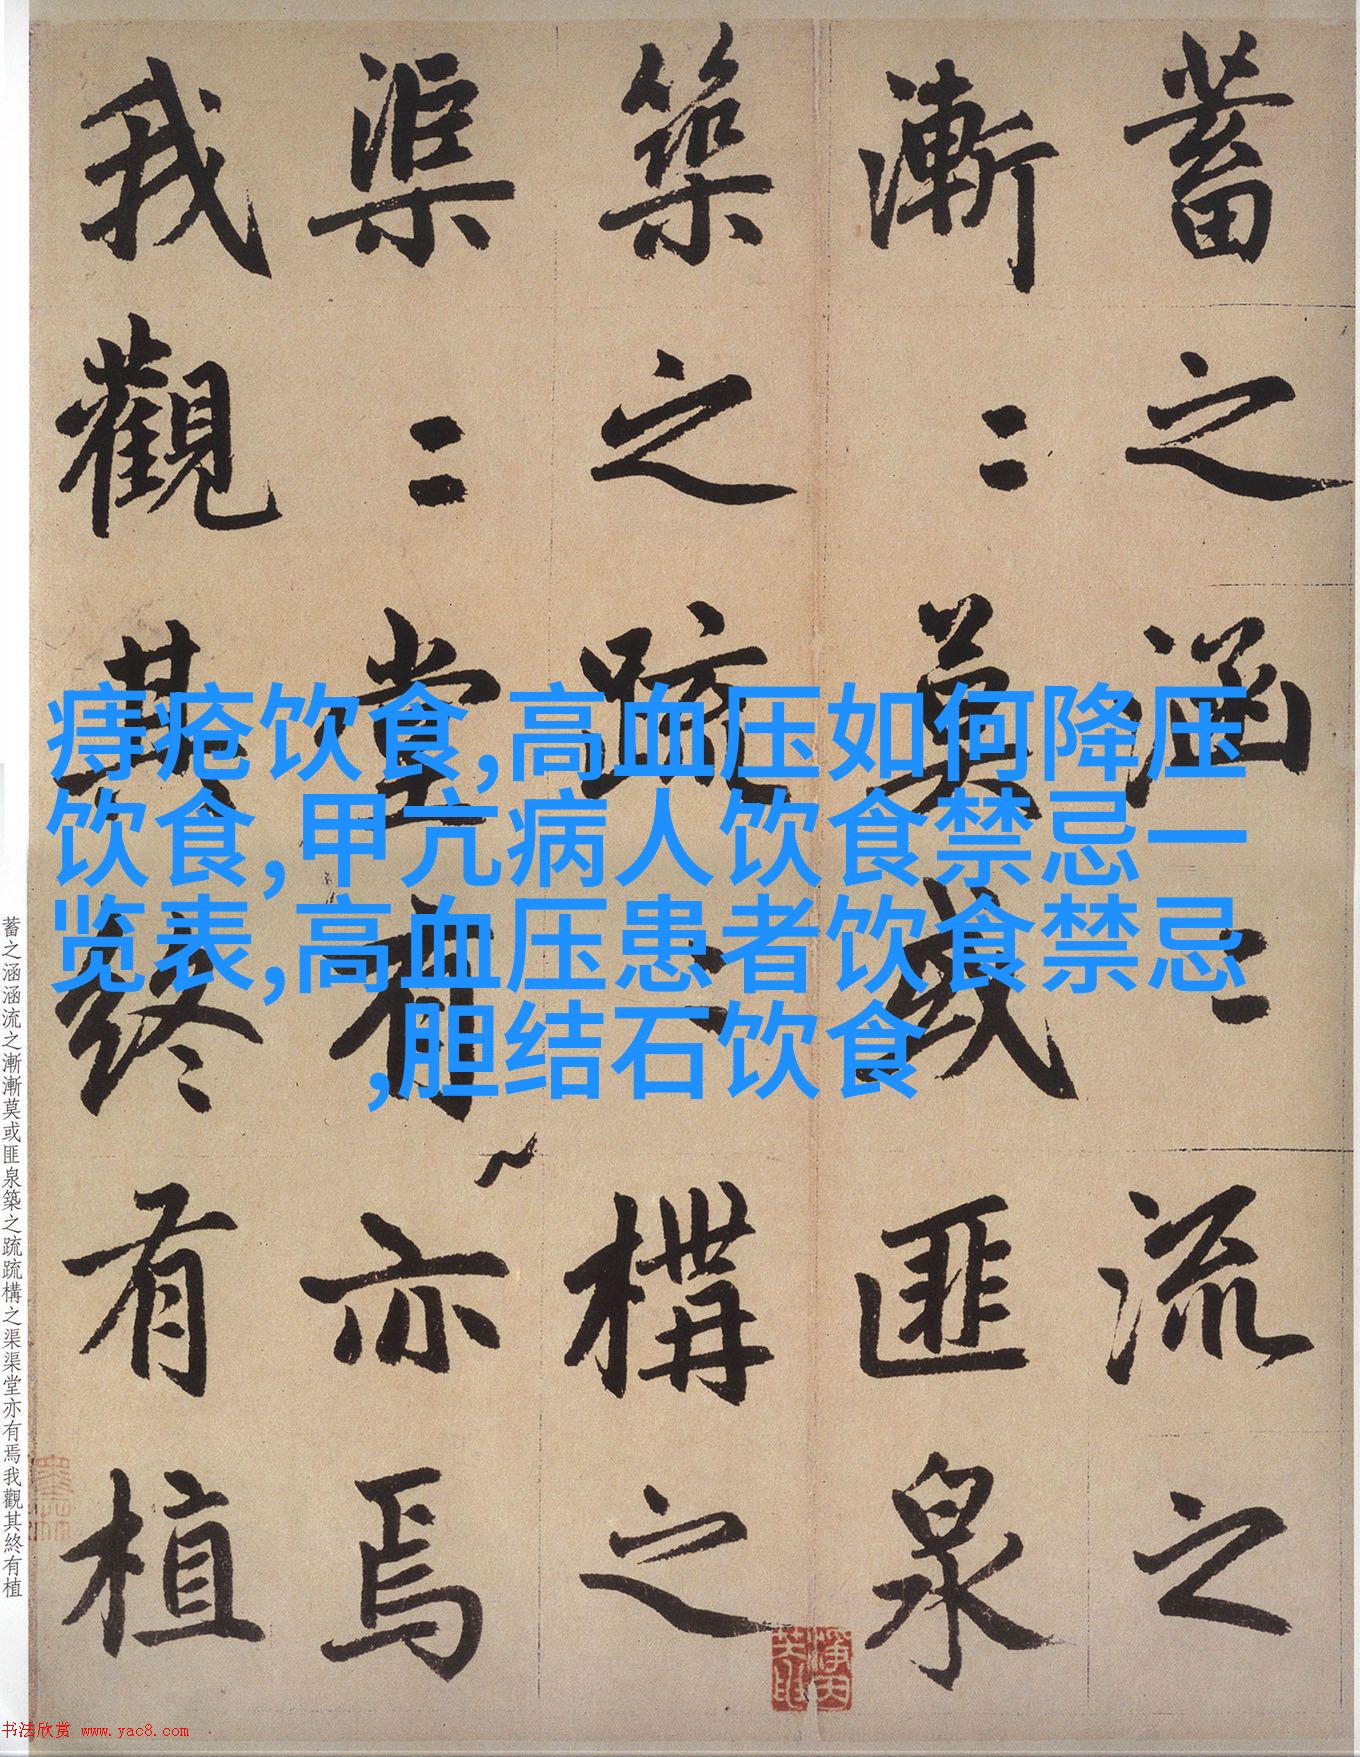 蓄之涵〻流之
漸〻莫或匪泉
築之疏〻構之
渠〻堂有亦焉
我觀其終有植
痔疮饮食,高血压如何降压
饮食,甲亢病人饮食禁忌一
览表,高血压患者饮食禁忌
,胆结石饮食
蓄之涵涵流之漸漸莫或匪泉築之疏疏構之渠渠堂亦有焉我觀其終有植
书法欣赏 www.yac8.com